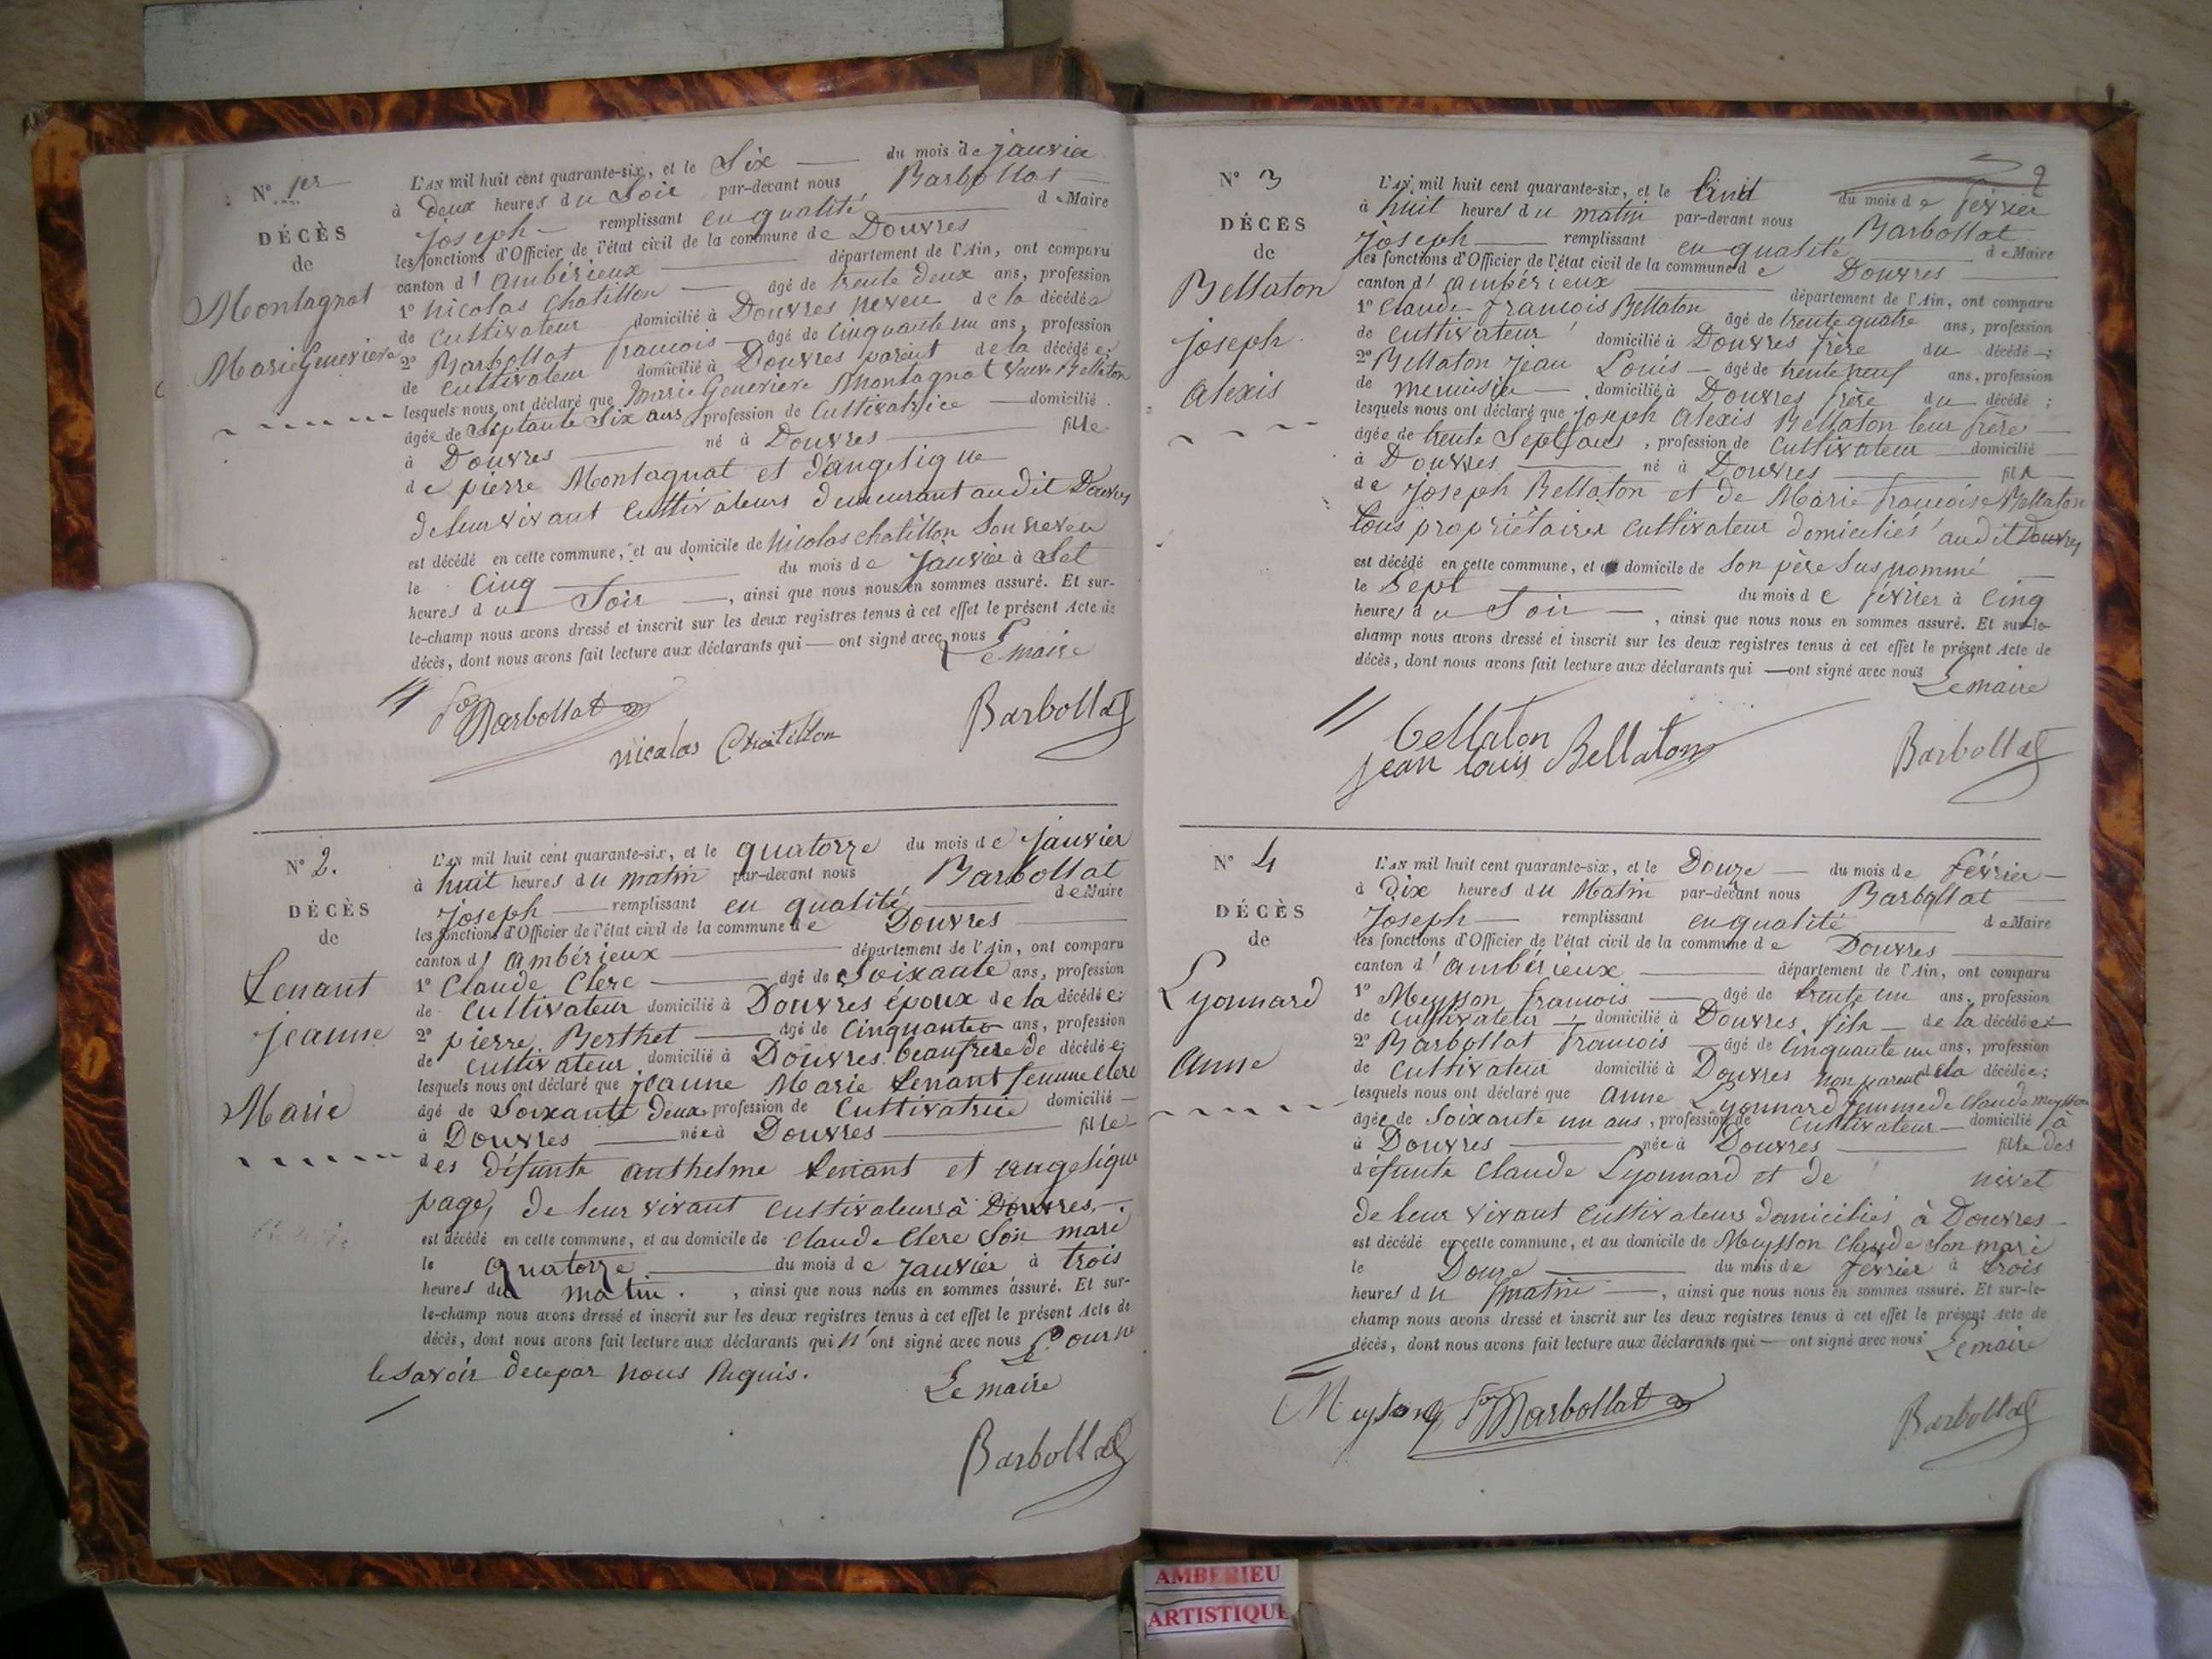 N° 1er
DÉCÈS
de
Montagnat
Marie Genevieve
L'AN mil huit cent quarante-six, et le Six du mois de janvier
à Deux heures du Soir par-devant nous Barbollat
joseph remplissant en qualité de Maire
les fonctions d'Officier de l'état civil de la commune de Douvres
canton d'ambérieux département de l'Ain, ont comparu
1° nicolas chatillon âgé de trente deux ans, profession
de Cultivateur domicilié à Douvres neveu de la décédée
2° Barbollat francois âgé de Cinquante un ans, profession
de Cultivateur domicilié à Douvres parent de la décédée;
lesquels nous ont déclaré que Marie Genevieve Montagnat veuve Bellaton
âgée de Septante Six ans profession de Cultivatrice domicilié
à Douvres né à Douvres fille
de pierre Montagnat et d'angelique
de leur vivant Cultivateurs demeurant audit Douvres
est décédé en cette commune, et au domicile de Nicolas chatillon Son neveu
le Cinq du mois de janvier à Set
heures du Soir, ainsi que nous nous en sommes assuré. Et sur-
le-champ nous avons dressé et inscrit sur les deux registres tenus à cet effet le présent Acte de
décès, dont nous avons fait lecture aux déclarants qui — ont signé avec nous
Le maire
Barbollat
nicolas Chatillon
Barbollat
N° 2.
DÉCÈS
de
Lenant
jeanne
Marie
L'AN mil huit cent quarante-six, et le quatorze du mois de janvier
à huit heures du matin par-devant nous Barbollat
joseph remplissant en qualité de Maire
les fonctions d'Officier de l'état civil de la commune de Douvres
canton d'ambérieux département de l'Ain, ont comparu
1° Claude Clerc âgé de Soixante ans, profession
de Cultivateur domicilié à Douvres époux de la décédée;
2° pierre Berthet âgé de Cinquante ans, profession
de cultivateur domicilié à Douvres beaufrere de décédée;
lesquels nous ont déclaré que jeanne Marie Lenant femme Clerc
âgé de Soixante deux profession de Cultivatrice domicilié
à Douvres née à Douvres fille
des défunts anthelme Lenant et angelique
page, de leur vivant cultivateurs à Douvres,
est décédé en cette commune, et au domicile de Claude Clerc Son mari
le Quatorze du mois de janvier à trois
heures du matin. , ainsi que nous nous en sommes assuré. Et sur-
le-champ nous avons dressé et inscrit sur les deux registres tenus à cet effet le présent Acte de
décès, dont nous avons fait lecture aux déclarants qui n'ont signé avec nous Pour ne
le savoir de par nous Requis.
Le maire
Barbollat
2
N° 3
DÉCÈS
de
Bellaton
joseph
alexis
L'AN mil huit cent quarante-six, et le huit du mois de février
à huit heures du matin par-devant nous Barbollat
joseph remplissant en qualité de Maire
les fonctions d'Officier de l'état civil de la commune de Douvres
canton d'ambérieux département de l'Ain, ont comparu
1° Claude francois Bellaton âgé de trente quatre ans, profession
de cultivateur domicilié à Douvres frère du décédé;
2° Bellaton jean Louis âgé de trente neuf ans, profession
de menuisier domicilié à Douvres frère du décédé;
lesquels nous ont déclaré que joseph alexis Bellaton leur frère
âgée de trente Sept ans, profession de cultivateur domicilié
à Douvres né à Douvres fils
de joseph Bellaton et de Marie francoise Bellaton
tous propriétaires cultivateur domiciliés audit Douvres
est décédé en cette commune, et au domicile de Son père Susnommé
le Sept du mois de février à Cinq
heures du Soir, ainsi que nous nous en sommes assuré. Et sur-le-
champ nous avons dressé et inscrit sur les deux registres tenus à cet effet le présent Acte de
décès, dont nous avons fait lecture aux déclarants qui — ont signé avec nous
Le maire
Bellaton
jean louis Bellaton
Barbollat
N° 4
DÉCÈS
de
Lyonnard
anne
L'AN mil huit cent quarante-six, et le Douze du mois de février
à Dix heures du Matin par-devant nous Barbollat
joseph remplissant en qualité de Maire
les fonctions d'Officier de l'état civil de la commune de Douvres
canton d'ambérieux département de l'Ain, ont comparu
1° Meysson francois âgé de trente un ans, profession
de cultivateur domicilié à Douvres fils de la décédée
2° Barbollat francois âgé de Cinquante un ans, profession
de Cultivateur domicilié à Douvres non parent de la décédée;
lesquels nous ont déclaré que anne Lyonnard femme de Claude meysson
âgée de Soixante un ans, profession de Cultivateur domicilié à
à Douvres née à Douvres fille des
défunts Claude Lyonnard et de nivet
de leur vivant cultivateurs domiciliés à Douvres
est décédé en cette commune, et au domicile de Meysson Claude Son mari
le Douze du mois de février à trois
heures du matin, ainsi que nous nous en sommes assuré. Et sur-le-
champ nous avons dressé et inscrit sur les deux registres tenus à cet effet le présent Acte de
décès, dont nous avons fait lecture aux déclarants qui — ont signé avec nous
Le maire
Meyson Barbollat
Barbollat
AMBERIEU
ARTISTIQUE